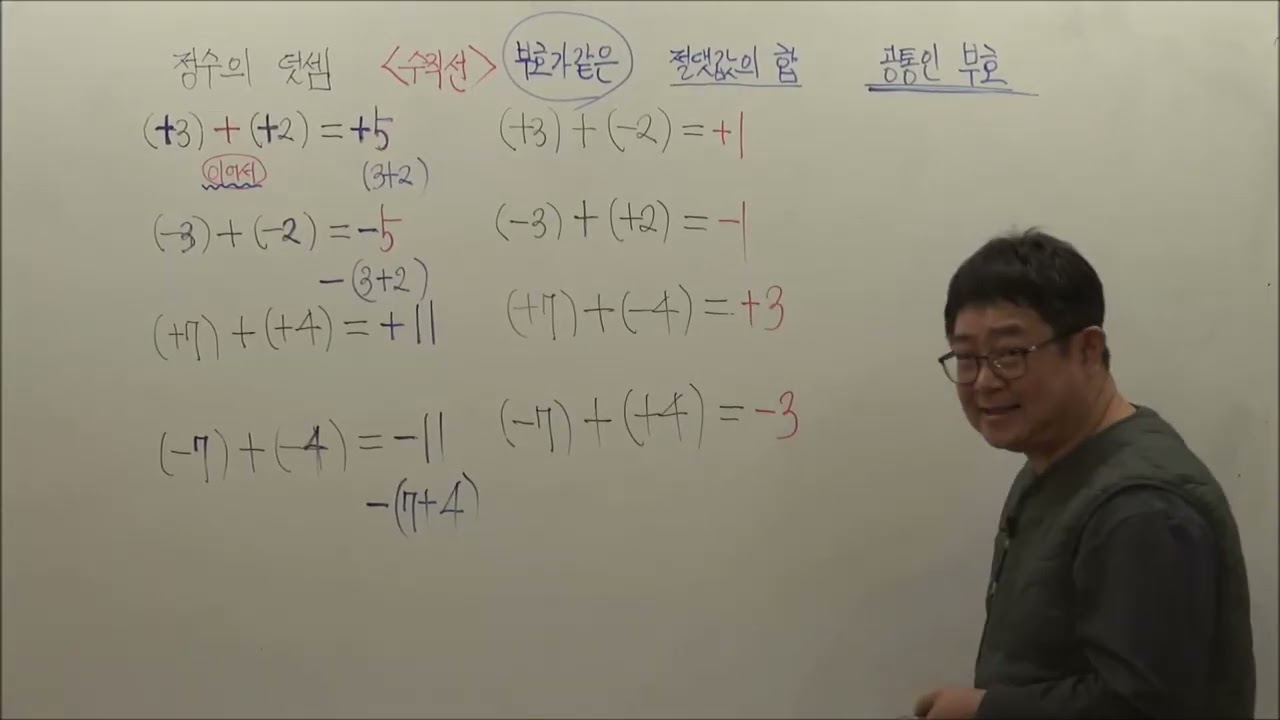 정수의 덧셈 <수직선> 부호가같은 절댓값의 합 공통인 부호
(+3) + (+2) = +5
이어서 (3+2)
(-3) + (-2) = -5
-(3+2)
(+7) + (+4) = +11
(-7) + (-4) = -11
-(7+4)
(+3) + (-2) = +1
(-3) + (+2) = -1
(+7) + (-4) = +3
(-7) + (+4) = -3